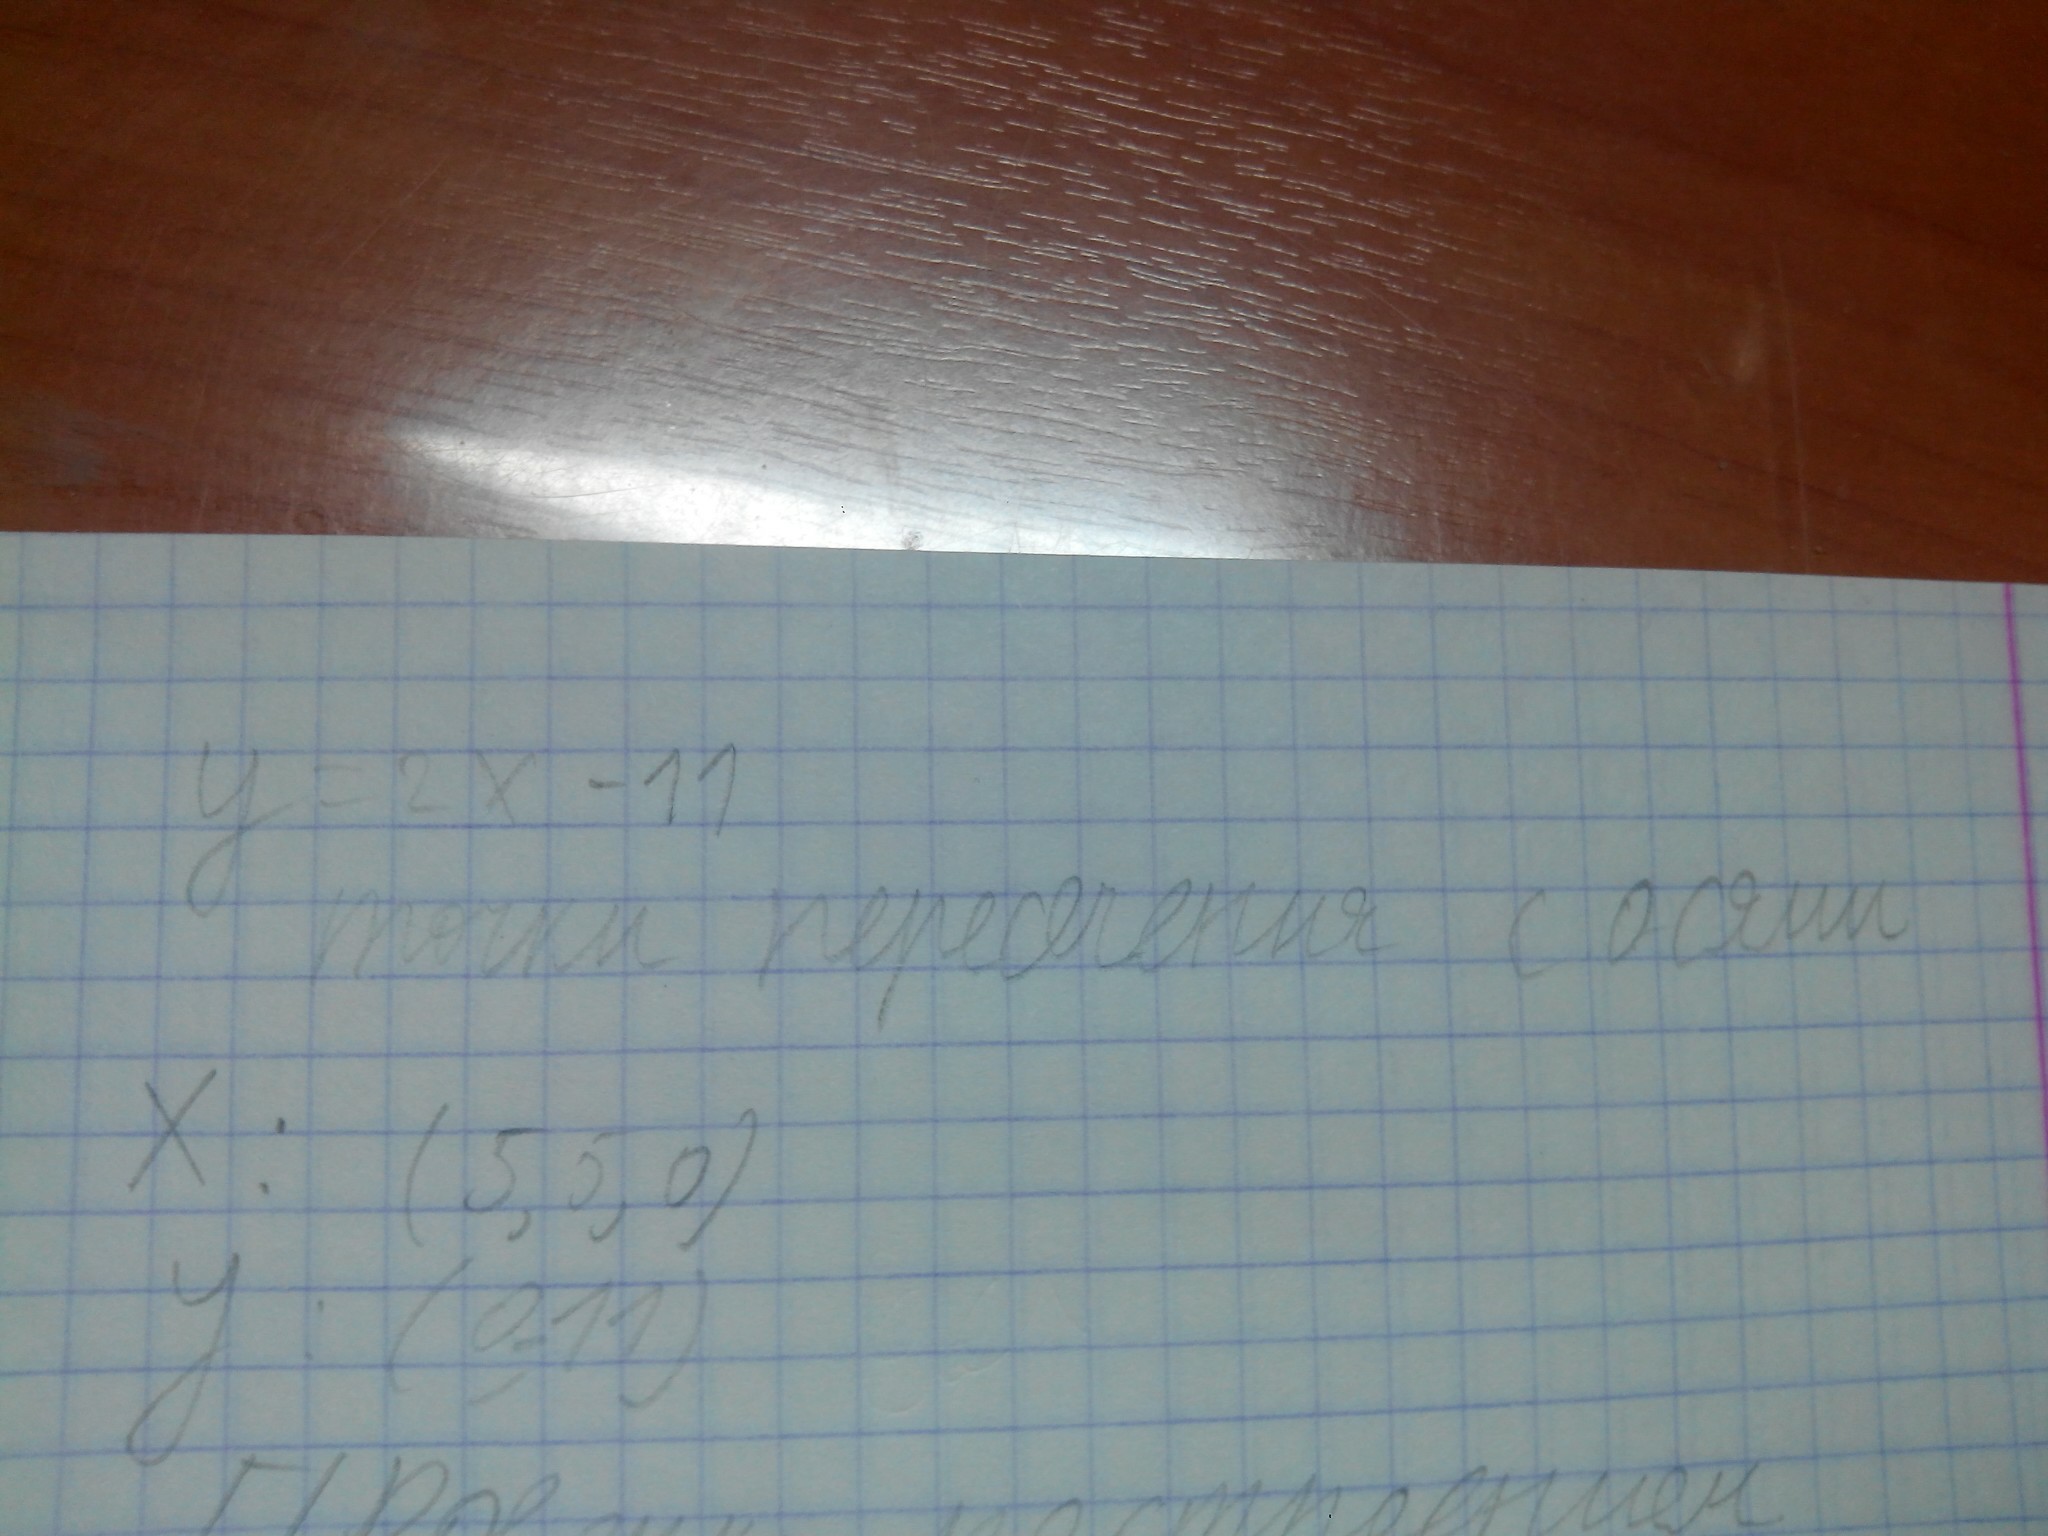 y = 2x - 11
точки пересечения с осями
X : (5,5,0)
y : (0,-11)
построения